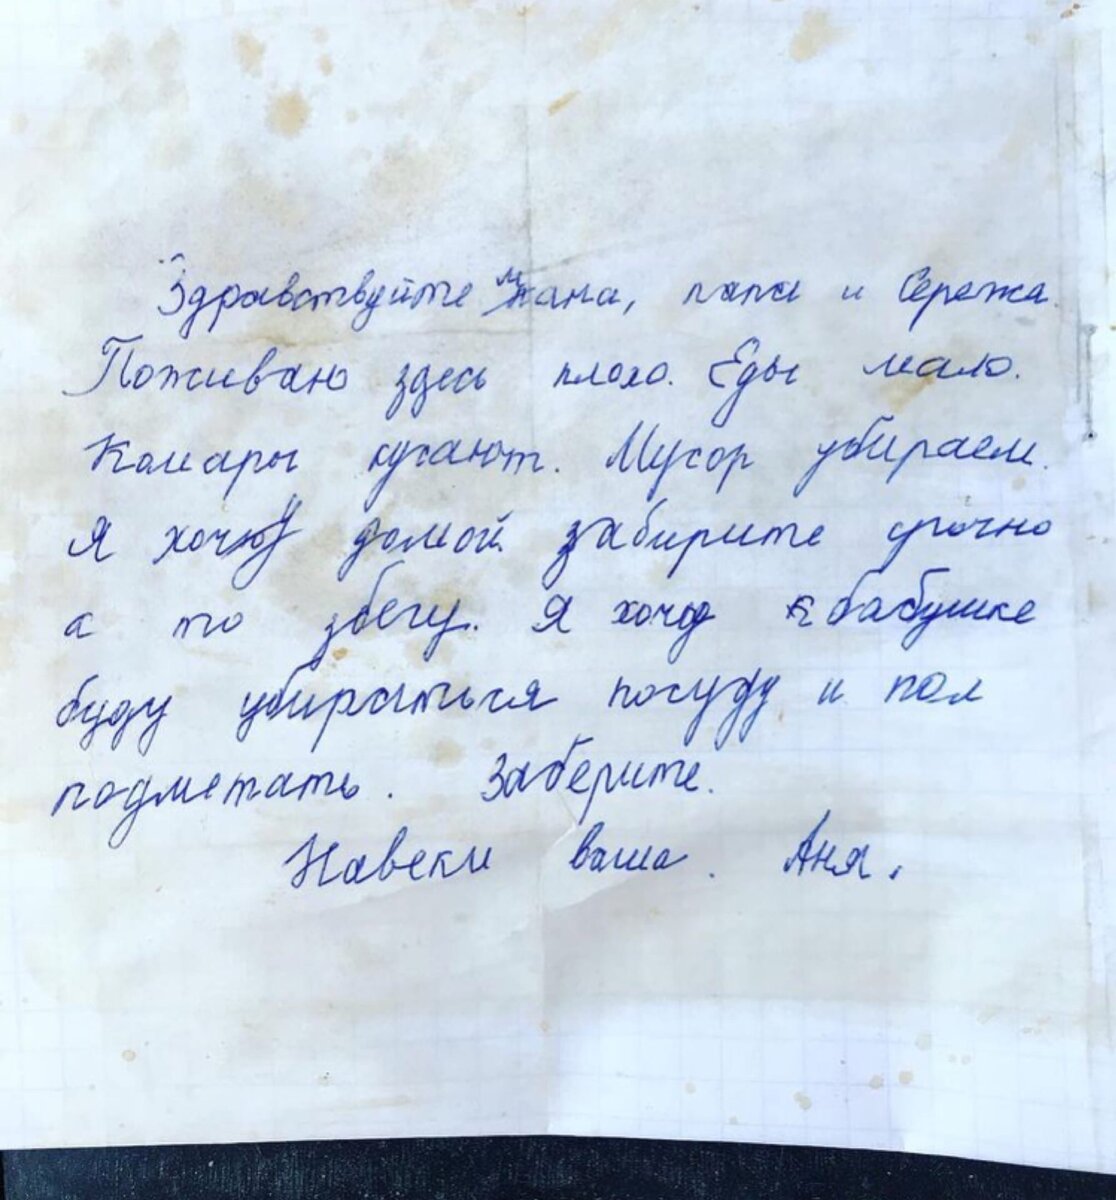 Здравствуйте мама, папа и Сережа.
Поживаю здесь плохо. Еды мало.
Комары кусают. Мусор убираем.
Я хочу домой забирите срочно
а то збегу. Я хочу к бабушке
буду убираться посуду и пол
подметать. Заберите.
Навеки ваша. Аня.